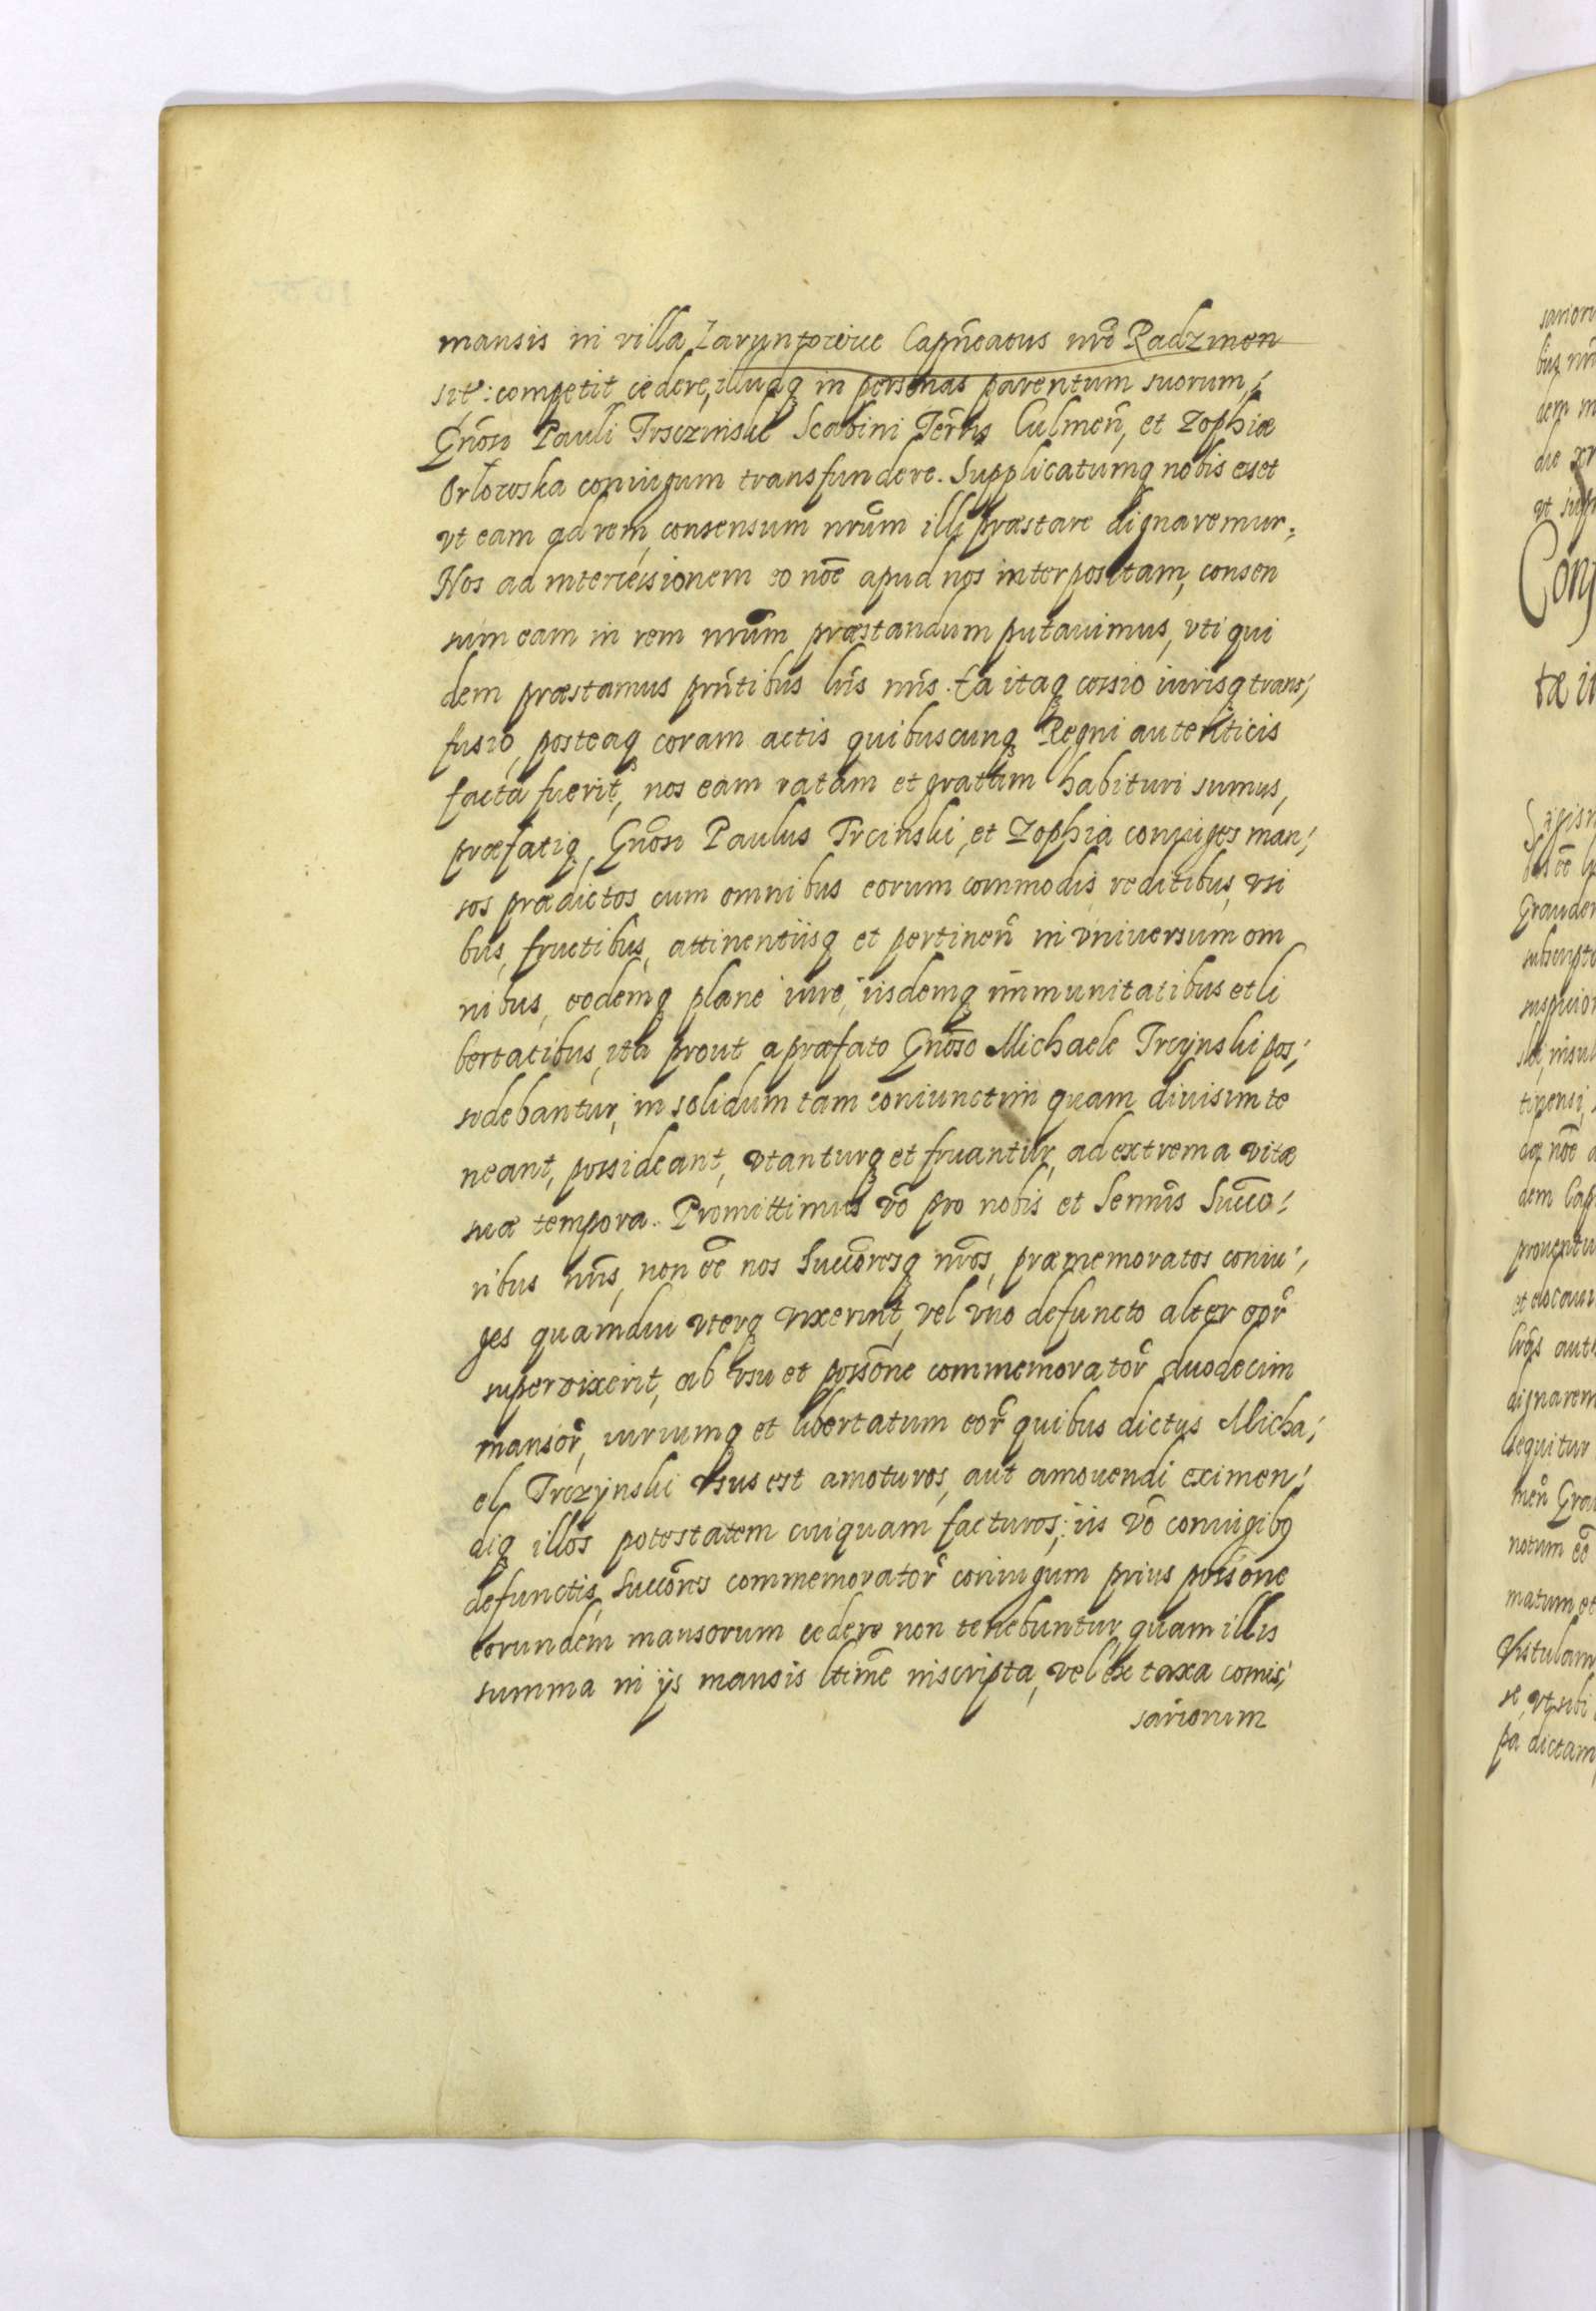 mansis in villa Zaruntowice Capñeatus nr̃i Radzinen
sit: competit cedere, illudq in personas parentum suorum,
Gñosi Pauli Trsczinski Scabini Terr̃is Culmeñ, et Zophiæ
Orlowska coniugum transfundere. Supplicatumq nobis esset
vt eam ad rem, consensum nr̃um illi præstare dignaremur.
Nos ad intercessionem eo nõe apud nos interpositam, consen
sum eam in rem nr̃um præstandum putauimus, vti qui
dem præstamus pñtibus lr̃is nr̃is. Ea itaq cessio iurisq trans,
fusio, posteaq coram actis quibuscunq Regni autenticis
facta fuerit, nos eam ratam et gratam habituri sumus,
præfatiq Gñosi Paulus Trcinski, et Zophia coniuges man,
sos prædictos cum omnibus eorum commodis, reditibus, vsi
bus, fructibus, attinentiisq et pertineñ in vniuersum om
nibus, eodemq plane iure, iisdemq immunitatibus et li
bertatibus, ita prout a præfato Gñoso Michaele Trcynski pos,
sidebantur, in solidum tam coniunctim quam diuisim te
neant, possideant, vtanturq et fruantur, ad extrema vitæ
suæ tempora. Promittimus vo pro nobis et Serm̃is Succo,
ribus nr̃is, non ẽe nos Succõresq nr̃os, præmemoratos coniu,
ges quamdiu vterq vixerint, vel vno defuncto alter eor̃
supervixerit, ab vsu et possõne commemorator̃ duodecim
mansor̃, iuriumq et libertatum eor̃ quibus dictus Micha,
el Trczynski vsus est amoturos, aut amouendi eximen,
diq illos potestatem cuiquam facturos; iis vo coniugibq
defunctis, Succõres commemorator̃ coniugum prius possõne
eorundem mansorum cedere non tenebuntur, quam illis
summa in ijs mansis ltim̃e inscripta, vel ex taxa comis,
sariorum